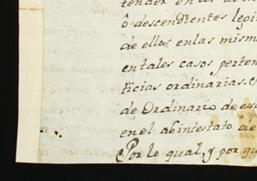 tender en los
ô descendientes legi
de ellas enlas mism
entales casos perten
ticias ordinarias.
de Ordinario de es
enel abintestato de
Por lo qual, y por qu